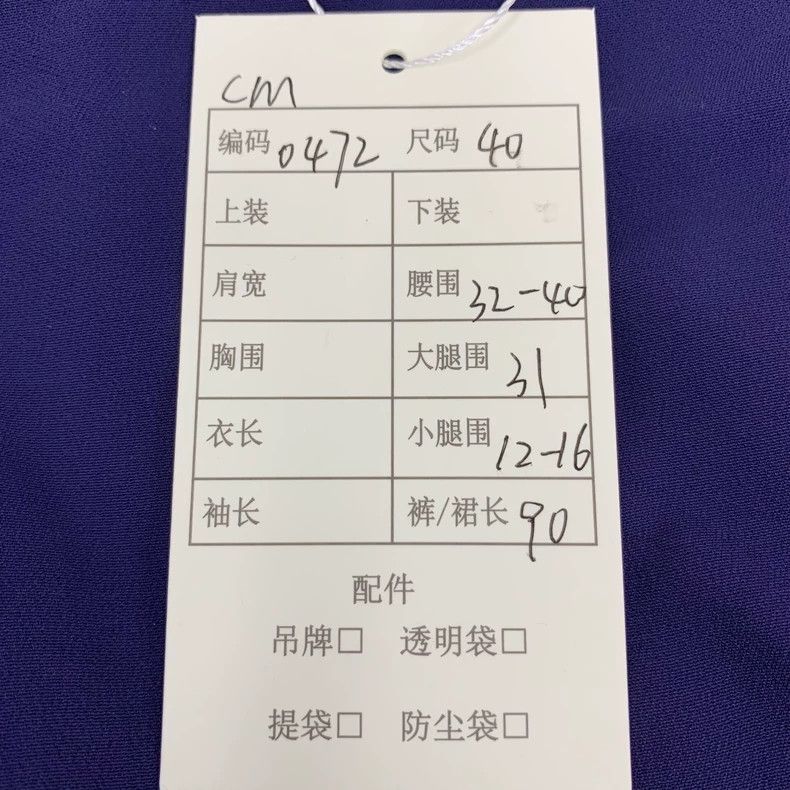 cm
编码 0472 尺码 40
上装 下装
肩宽 腰围 32-40
胸围 大腿围 31
衣长 小腿围 12-16
袖长 裤/裙长 90
配件
吊牌□ 透明袋□
提袋□ 防尘袋□